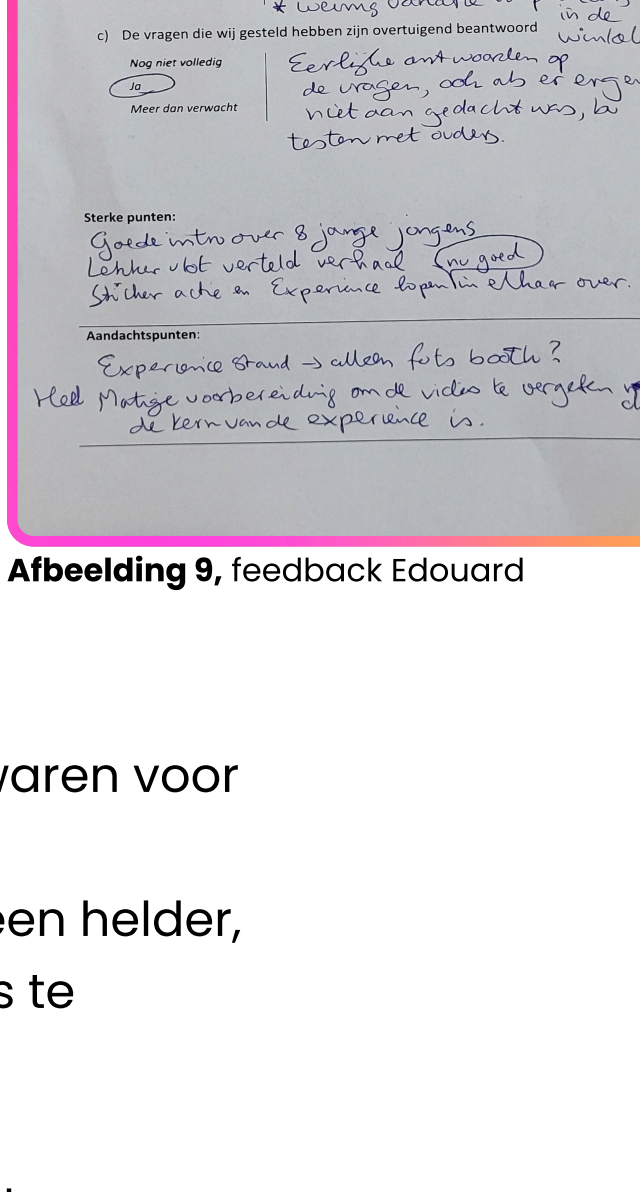 * weinig
in de
c) De vragen die wij gesteld hebben zijn overtuigend beantwoord
winkel
Nog niet volledig
Ja
Meer dan verwacht
Eerlijke antwoorden op
de vragen, ook als er erge
niet aan gedacht was, bv
testen met ouders.
Sterke punten:
Goede intro over 8 jarige jongens
Lekker vlot verteld verhaal nu goed
Sticker actie en Experience lopen in elkaar over.
Aandachtspunten:
Experience stand → alleen foto booth?
Heel Matige voorbereiding om de video te vergeten
de kern van de experience is.
Afbeelding 9, feedback Edouard
waren voor
een helder,
s te